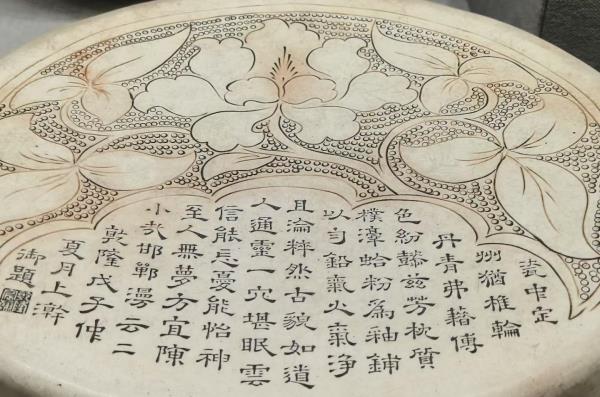 瓷中定
州猶椎輪
丹青弗藉傅
色紛懿茲芳枕質
樸淳蛤粉為釉鋪
以勻鉛氣火氣淨
且淪粹然古貌如道
人通靈一穴堪眠雲
信能忘憂能怡神
至人無夢方宜陳
小哉邯鄲漫云二
乾隆戊子仲
夏月上澣
御題